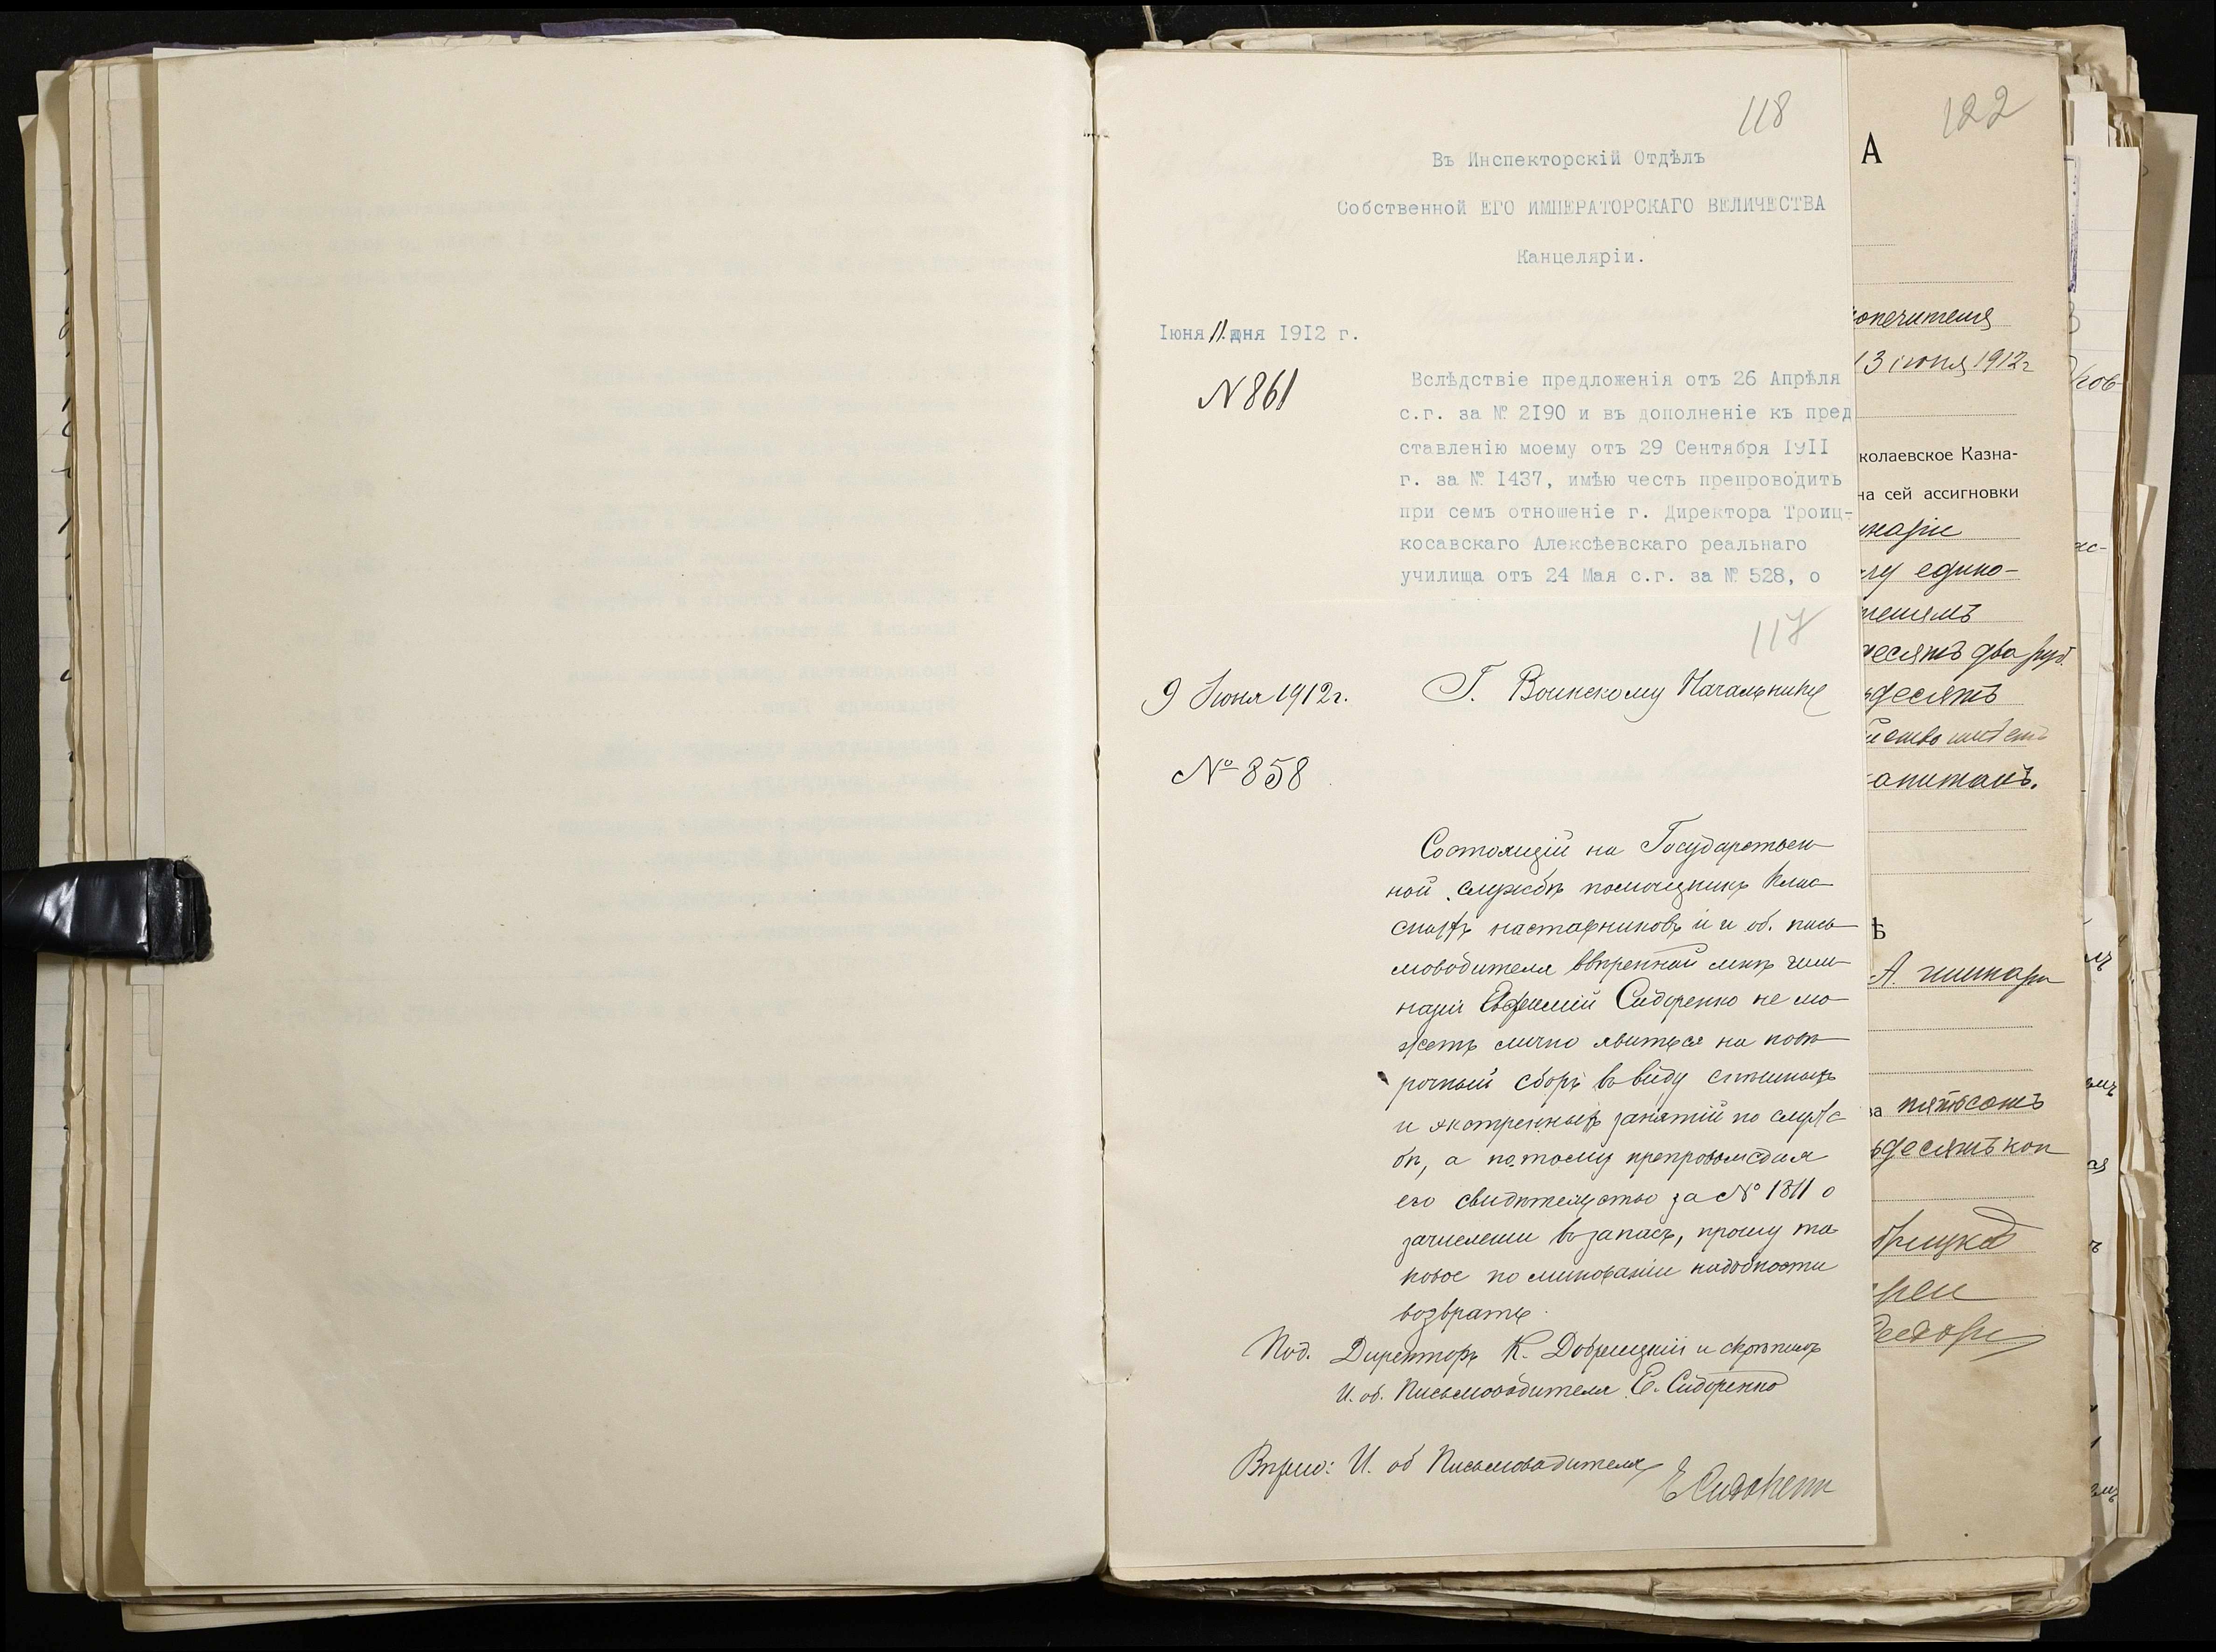 118
Въ Инспекторскій Отдѣлъ
Собственной ЕГО ИМПЕРАТОРСКАГО ВЕЛИЧЕСТВА
Канцеляріи.
Іюня 11 дня 1912 г.
N 861
Вслѣдствіе предложенія отъ 26 Апрѣля
с.г. за № 2190 и въ дополненіе къ пред
ставленію моему отъ 29 Сентября 1911
г. за № 1437, имѣю честь препроводить
при семъ отношеніе г. Директора Троиц-
косавскаго Алексѣевскаго реальнаго
училища отъ 24 Мая с.г. за № 528, о
117
9 Іюня 1912 г.
Г. Воинскому Начальнику
№ 858
Состоящій на Государствен
ной службѣ помощникъ клас
сныхъ наставниковъ и и об. пись
моводителя ввѣренной мнѣ гим
назіи Евфимій Сидоренко не мо
жетъ лично явиться на повѣ
рочный сборъ въ виду спѣшныхъ
и экстренныхъ занятій по служ
бѣ, а потому препровождая
его свидѣтельство за № 1811 о
зачисленіи въ запасъ, прошу та
ковое по минованіи надобности
возврать.
Под. Директоръ К. Добрицкій и скрѣпилъ
И. об. Письмоводителя Е. Сидоренко
Вѣрно: И. об Письмоводителя
ЕСидоренко
122
А
опечителя
13 іюня 1912 г
колаевское Казна-
на сей ассигновки
едино-
десятъ два руб.
десятъ
апитанъ.
ѣ
пятьсотъ
десятъ коп